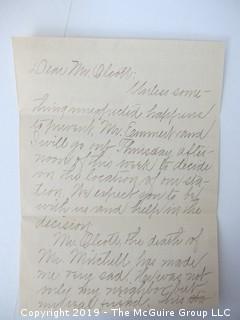 Dear Mr. Olcott:
Unless some-
thing unexpected happens
to prevent, Mr. Emmert and
I will go out Thursday after-
noon of this week to decide
on the location of our sta-
tion. We expect you to be
with us and help in the
decision.
Mr. Olcott, the death of
Mr. Mitchell has made
me very sad. He was not
only my neighbor, but
my friend. His
Copyright 2019 - The McGuire Group LLC